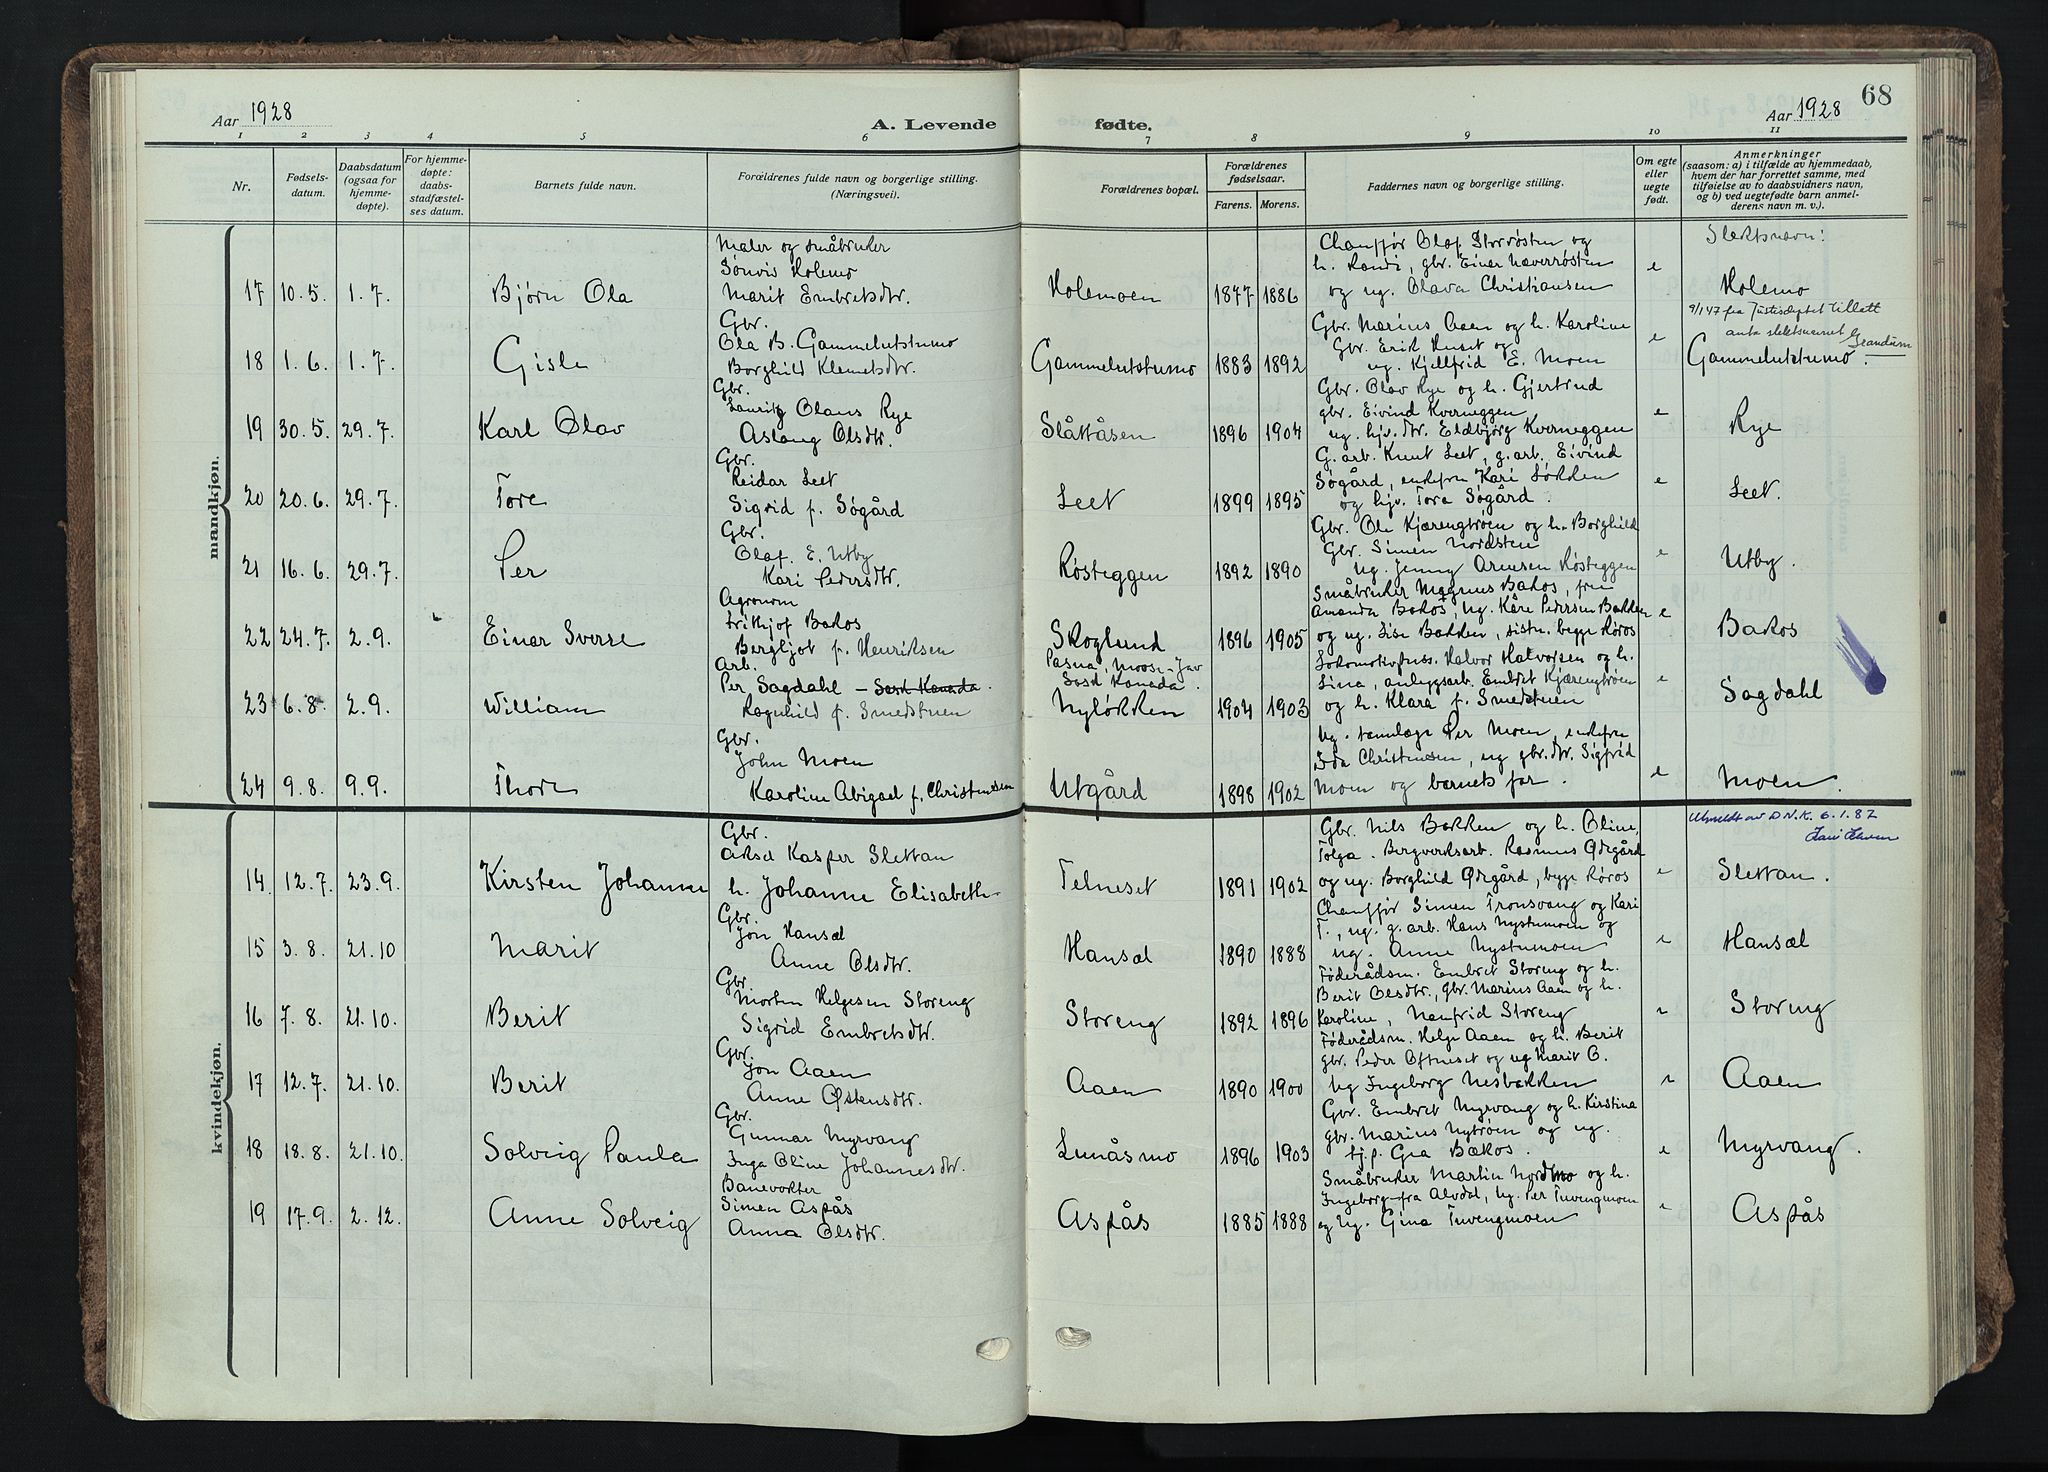 Aar 1928
A. Levende
fødte.
Aar 1928
68
1 2 3 4 5 6 7 8 9 10 11
Nr.
Fødsels-
datum.
Daabsdatum
(ogsaa for
hjemme-
døpte).
For hjemme-
døpte:
daabs-
stadfæstel-
ses datum.
Barnets fulde navn.
Forældrenes fulde navn og borgerlige stilling.
(Næringsvei).
Forældrenes bopæl.
Forældrenes
fødselsaar.
Farens. Morens.
Faddernes navn og borgerlige stilling.
Om egte
eller
uegte
født.
Anmerkninger
(saasom: a) i tilfælde av hjemmedaab,
hvem der har forrettet samme, med
tilføielse av to daabsvidners navn,
og b) ved uegtefødte barn anmel-
derens navn m. v.).
mandkjøn.
Slektsnavn:
Maler og småbruker
Sønvis Holemo
17 10.5. 1.7. Bjørn Ola Marit Embretsdtr. Holemoen 1877 1886
Chauffør Olaf Storrøsten og
h. Randi, gbr. Einar Næverrøsten
og ug. Olava Christiansen
e Holemo
9/1 47 fra Justisdeptet tillatt
anta slektsnavnet Grandum
Gbr.
Ola B. Gammelutstumo
18 1.6. 1.7. Gisle Borghild Klemetsdtr. Gammelutstumo 1883 1892
Gbr. Marius Aaen og h. Karoline
Gbr. Erik Huset og
ug. Kjellfrid E. Moen
e Gammelutstumo.
Gbr.
Lauritz Olaus Rye
19 30.5. 29.7. Karl Olav Aslaug Olsdtr. Slåttåsen 1896 1904
Gbr. Olav Rye og h. Gjertrud
gbr. Eivind Kverneggen
ug. hjv. dtr. Eldbjørg Kverneggen
e Rye
Gbr.
Reidar Leet
20 20.6. 29.7. Tore Sigrid f. Søgård Leet 1899 1895
G. arb. Knut Leet, g. arb. Eivind
Søgård, enkefru Kari Løkken
og hjv. Tora Søgård.
e Leet.
Gbr.
Olaf E. Utby
21 16.6. 29.7. Per Kari Pedersdtr. Røsteggen 1892 1890
Gbr. Ola Kjærengtrøen og h. Borghild
Gbr. Simen Nordsten
Ug. Jenny Arnesen Røsteggen
e Utby.
Agronom
Frithjof Bakos
22 24.7. 2.9. Einar Sverre Bergljot f. Henriksen Skoglund 1896 1905
Småbruker Magnus Bakos, fru
Amanda Bakos, Ug. Kåre Pedersen Bakken
og ug. Lise Bakken, begge Røros
e Bakos
Arb.
Per Sagdahl – Sask Kanada.
23 6.8. 2.9. William Ragnhild f. Smedstuen
Moose-Jav
Sask Kanada.
Nyløkken 1904 1903
Lokomotivfuss. Halvor Halvorsen og h.
Lina, anleggsarb. Embret Kjærengtrøen
og h. Klara f. Smedstuen
e Sagdahl
Gbr.
John Moen
24 9.8. 9.9. Thore Karoline Abigael f. Christensen Utgård 1898 1902
Ug. tannlæge Per Moen, enkefru
Ida Christensen, ug gbr. dtr. Sigfrid
Moen og barnets far.
e Moen.
kvindekjøn.
Utmeldt av D.N.K. 6.1.82
Gbr.
Aksel Kasper Slettan
14 12.7. 23.9. Kirsten Johanne h. Johanne Elisabeth Telneset 1891 1902
Gbr. Nils Bakken og h. Oline,
Tolga. Bergverksarb. Rasmus Ødegård
og ug. Borghild Ødegård, begge Røros
e Slettan.
Gbr.
Jon Hansæl
15 3.8. 21.10 Marit Anne Olsdtr. Hansæl 1890 1888
Chauffør Simen Tronsvang og Kari
T., ug. g. arb. Hans Nystumoen og
ug. Anne Nystumoen
e Hansæl
Gbr.
Morten Helgesen Storeng
16 7.8. 21.10. Berit Sigrid Embretsdtr. Storeng 1892 1896
Føderådsm. Embret Storeng og h.
Berit Olsdtr., gbr. Marius Aaen og h.
Karoline, Namfrid Storeng
e Storeng
Gbr.
Jon Aaen
17 12.7. 21.10. Berit Anne Østensdtr. Aaen 1890 1900
Føderådsm. Helge Aaen og h. Berit
gbr. Peder Oftneset og ug Marit O.
Ug Ingeborg Nesbakken
e Aaen
Gbr.
Gunnar Myrvang
18 18.8. 21.10. Solveig Paula Inga Oline Johannesdtr. Lunåsmo 1896 1903
Gbr. Embret Myrvang og h. Kirstina
gbr. Marius Nytrøen og ug.
tj.p. Gea Bakos.
e Myrvang.
Banevokter
Simen Aspås
19 17.9. 2.12. Anne Solveig Anna Olsdtr. Aspås 1885 1888
Småbruker Martin Nordmo og h.
Ingeborg fra Alvdal, Ug. Per Tuvengmoen
og Ug. Gina Tuvengmoen
e Aspås